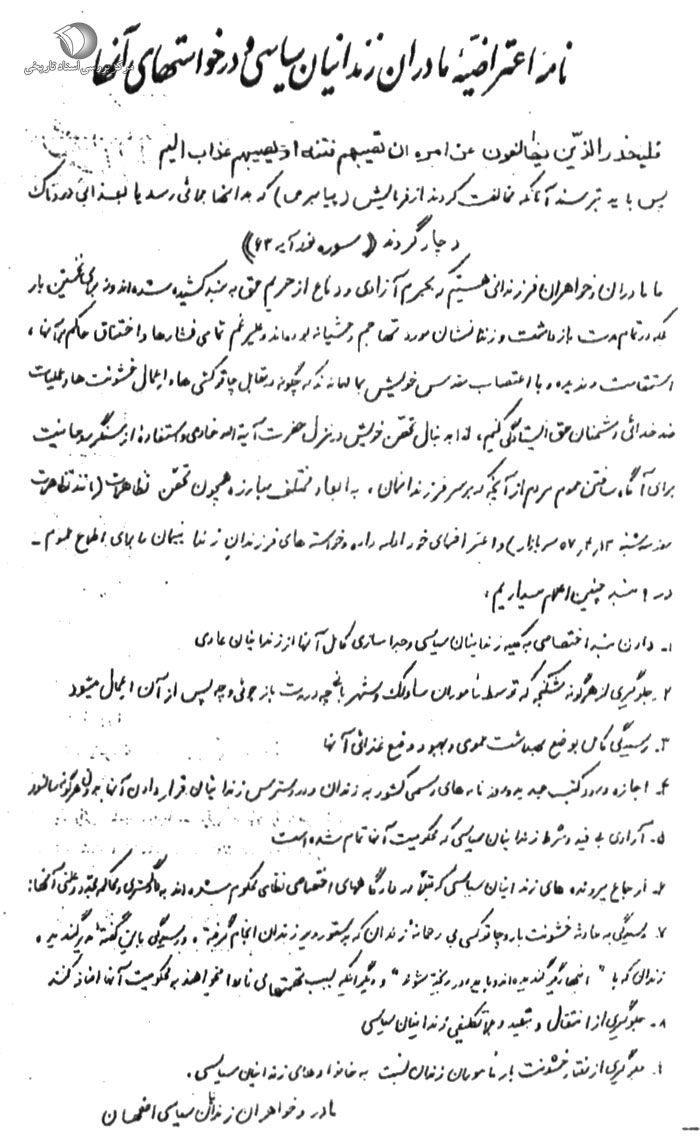 مرکز بررسی اسناد تاریخی
نامهٔ اعتراضیهٔ مادران زندانیان سیاسی و درخواستهای آنها
فلیحذر الذین یخالفون عن امره ان تصیبهم فتنه او یصیبهم عذاب الیم
پس باید بترسند آنانکه مخالفت کردند از فرمایش (پیامبر ص) که بدانها بلائی رسد یا بعذابی دردناک
دچار گردند (( سوره نور آیه ۶۳ ))
ما مادران و خواهران فرزندانی هستیم که بجرم آزادی و دفاع از حریم حق به بند کشیده شده‌اند و نه برای نخستین بار
بلکه در تمام مدت بازداشت و زندانشان مورد تهاجم وحشیانه بوده‌اند و علیرغم تمامی فشارها و اختناق حاکم بر آنها ،
استقامت ورزیده و با اعتصاب مقدس خویش بما فهماندند که چگونه در مقابل چاقوکشی‌ها و اعمال خشونت‌ها و عملیات
ضد خدائی دشمنان حق ایستادگی کنیم ، لذا به دنبال تحصن خویش در منزل حضرت آیة اله خادمی و استفاده از سنگر روحانیت
برای آگاه ساختن عموم مردم از آنچه که بر سر فرزندانمان ، به ابعاد مختلف مبارزه همچون تحصن تظاهرات (مانند تظاهرات
سه شنبه ۵۷٫۴٫۱۳ سر بازار) و اعتراضهای خود ادامه داده و خواسته‌های فرزندان زندانیمان را برای اطلاع عموم -
در بند چنین اعلام میداریم .
۱- دادن بند اختصاصی به کلیه زندانیان سیاسی و جدا سازی کامل آنها از زندانیان عادی
۲- جلوگیری از هرگونه شکنجه که توسط ماموران ساواک و شهربانی چه در مدت بازجوئی و چه پس از آن اعمال میشود
۳- رسیدگی کامل بوضع بهداشت عمومی و بهبود وضع غذائی آنها
۴- اجازه ورود کتب جدید و روزنامه‌های رسمی کشور به زندان و در دسترس زندانیان قرار دادن آنها بدون هرگونه سانسور
۵- آزادی بی قید و شرط زندانیان سیاسی که محکومیت آنها تمام شده است
۶- ارجاع پرونده های زندانیان سیاسی که قبلاً در دادگاههای اختصاصی نظامی محکوم شده‌اند به دادگستری و محاکمه مجدد و علنی آنها:
۷- رسیدگی به حادثه خشونت بار و چاقوکشی بی رحمانهٔ زندان که بدستور مدیر زندان انجام گرفته ، و رسیدگی باین گفتهٔ
زندان که با " اینها دیگر گندیده‌اند و باید دور ریخته شوند " و دیگر اینکه بسبب تهمتهای ناروا میخواهند به محکومیت آنها اضافه کنند
۸- جلوگیری از انتقال و تبعید و بلاتکلیفی زندانیان سیاسی
۹- جلوگیری از رفتار خشونت بار ماموران زندان نسبت به خانواده‌های زندانیان سیاسی .
مادر و خواهران زندانیان سیاسی اصفهان